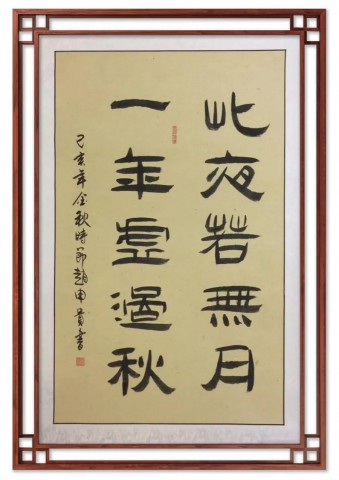 此夜若無月
一年虛過秋
己亥年金秋時節趙由貴書